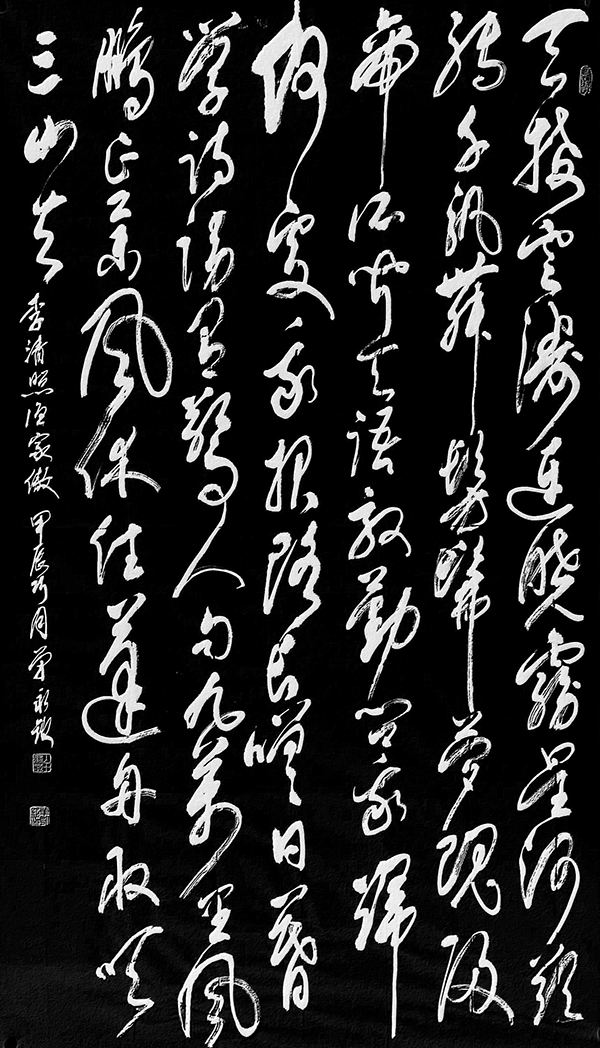 天接雲濤連曉霧星河欲
轉千帆舞髣髴夢魂歸
帝所聞天語殷勤問我歸
何處我報路長嗟日暮
學詩謾有驚人句九萬里風
鵬正舉風休住蓬舟取吹
三山去
李清照漁家傲 甲辰巧月